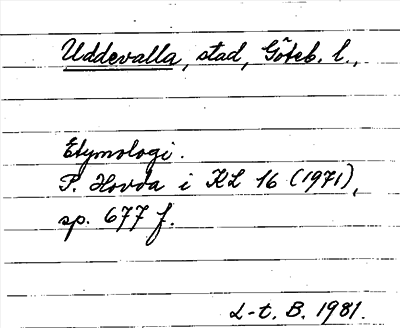 Uddevalla, stad, Göteb. l.,
Etymologi.
P. Hovda i KL 16 (1971),
sp. 677 f.
L-t. B. 1981.